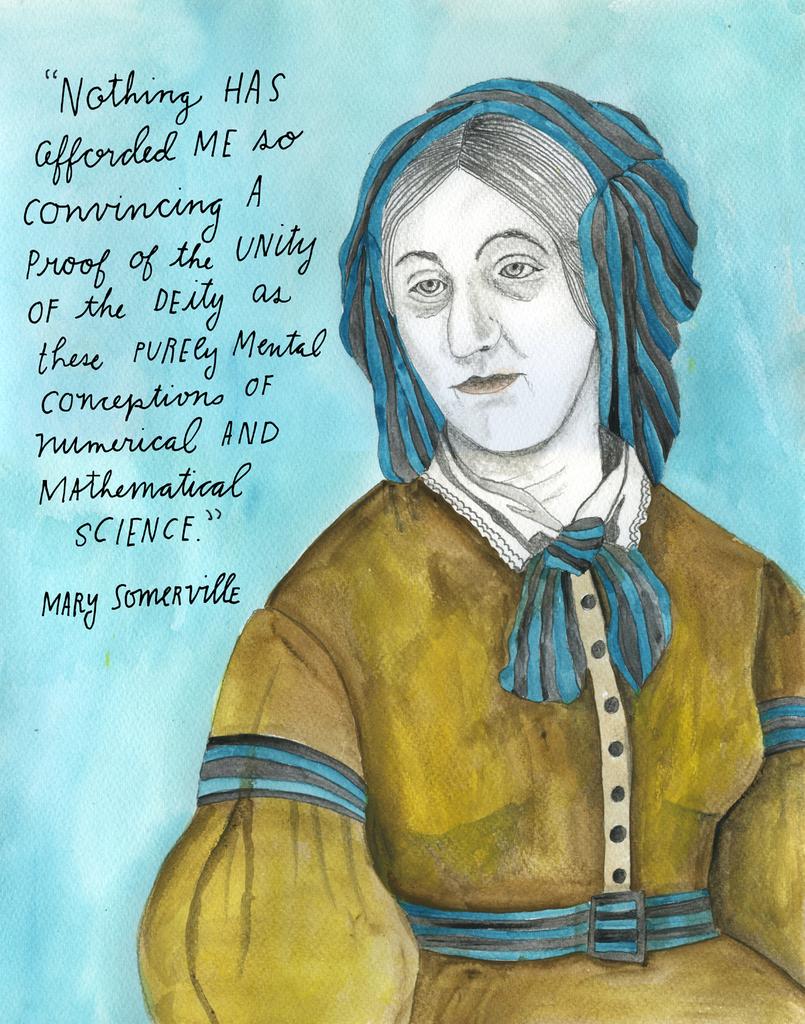 “Nothing HAS
afforded ME so
convincing A
Proof of the UNity
OF the DEity as
these PUREly Mental
conceptions OF
Numerical AND
MAthematical
SCIENCE.”
MARy SomerVille